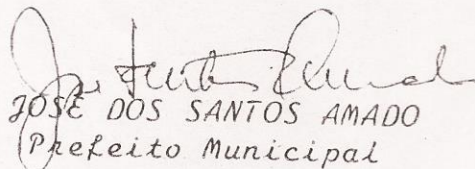 JOSÉ DOS SANTOS AMADO
Prefeito Municipal